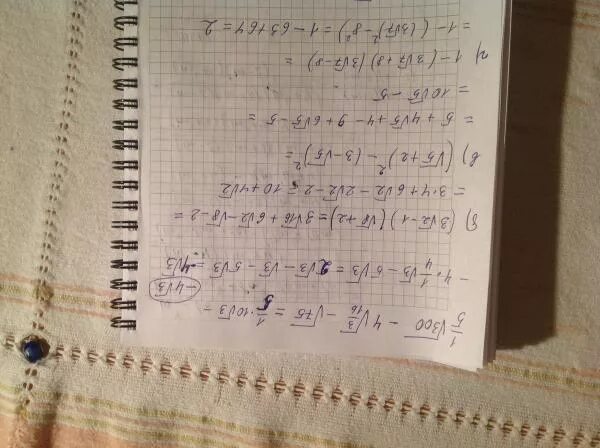 1/5 √300 - 4√(3/16) - √75 = 1/5 · 10√3 -
- 4 · 1/4 √3 - 5√3 = 2√3 - √3 - 5√3 = -4√3
-4√3
б) (3√2 - 1)(√8 + 2) = 3√16 + 6√2 - √8 - 2 =
= 3·4 + 6√2 - 2√2 - 2 = 10 + 4√2
в) (√5 + 2)² - (3 - √5)² =
= 5 + 4√5 + 4 - 9 + 6√5 - 5 =
= 10√5 - 5
г) 1 - (3√7 + 8)(3√7 - 8) =
= 1 - ((3√7)² - 8²) = 1 - 63 + 64 = 2